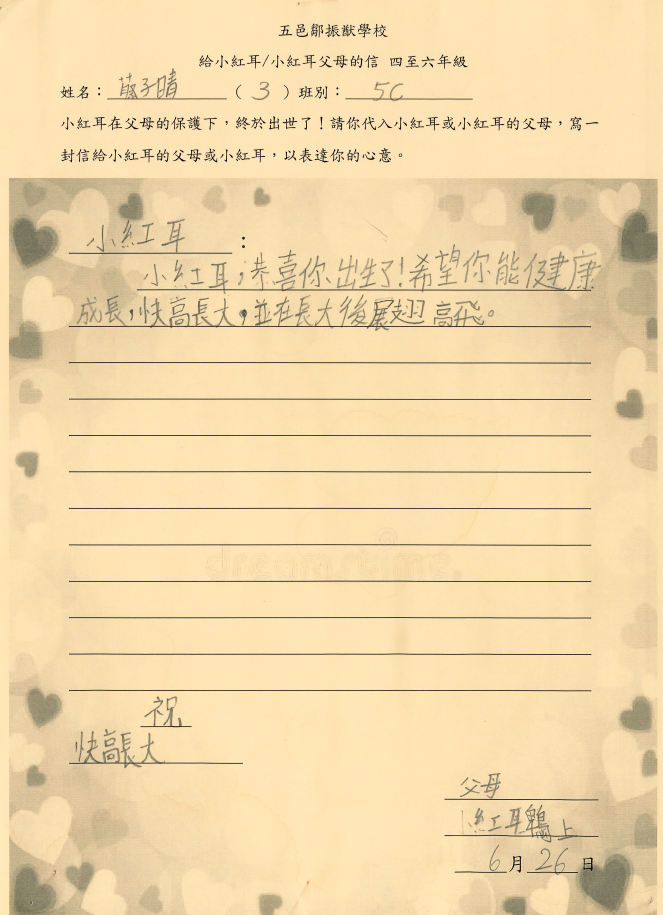 五邑鄒振猷學校
給小紅耳/小紅耳父母的信 四至六年級
姓名：子晴（3）班別：5C
小紅耳在父母的保護下，終於出世了！請你代入小紅耳或小紅耳的父母，寫一
封信給小紅耳的父母或小紅耳，以表達你的心意。
小紅耳：
小紅耳，恭喜你出生了！希望你能健康
成長，快高長大，並在長大後展翅高飛。
dreamstime.
祝
快高長大
父母
紅耳鵯上
6月26日